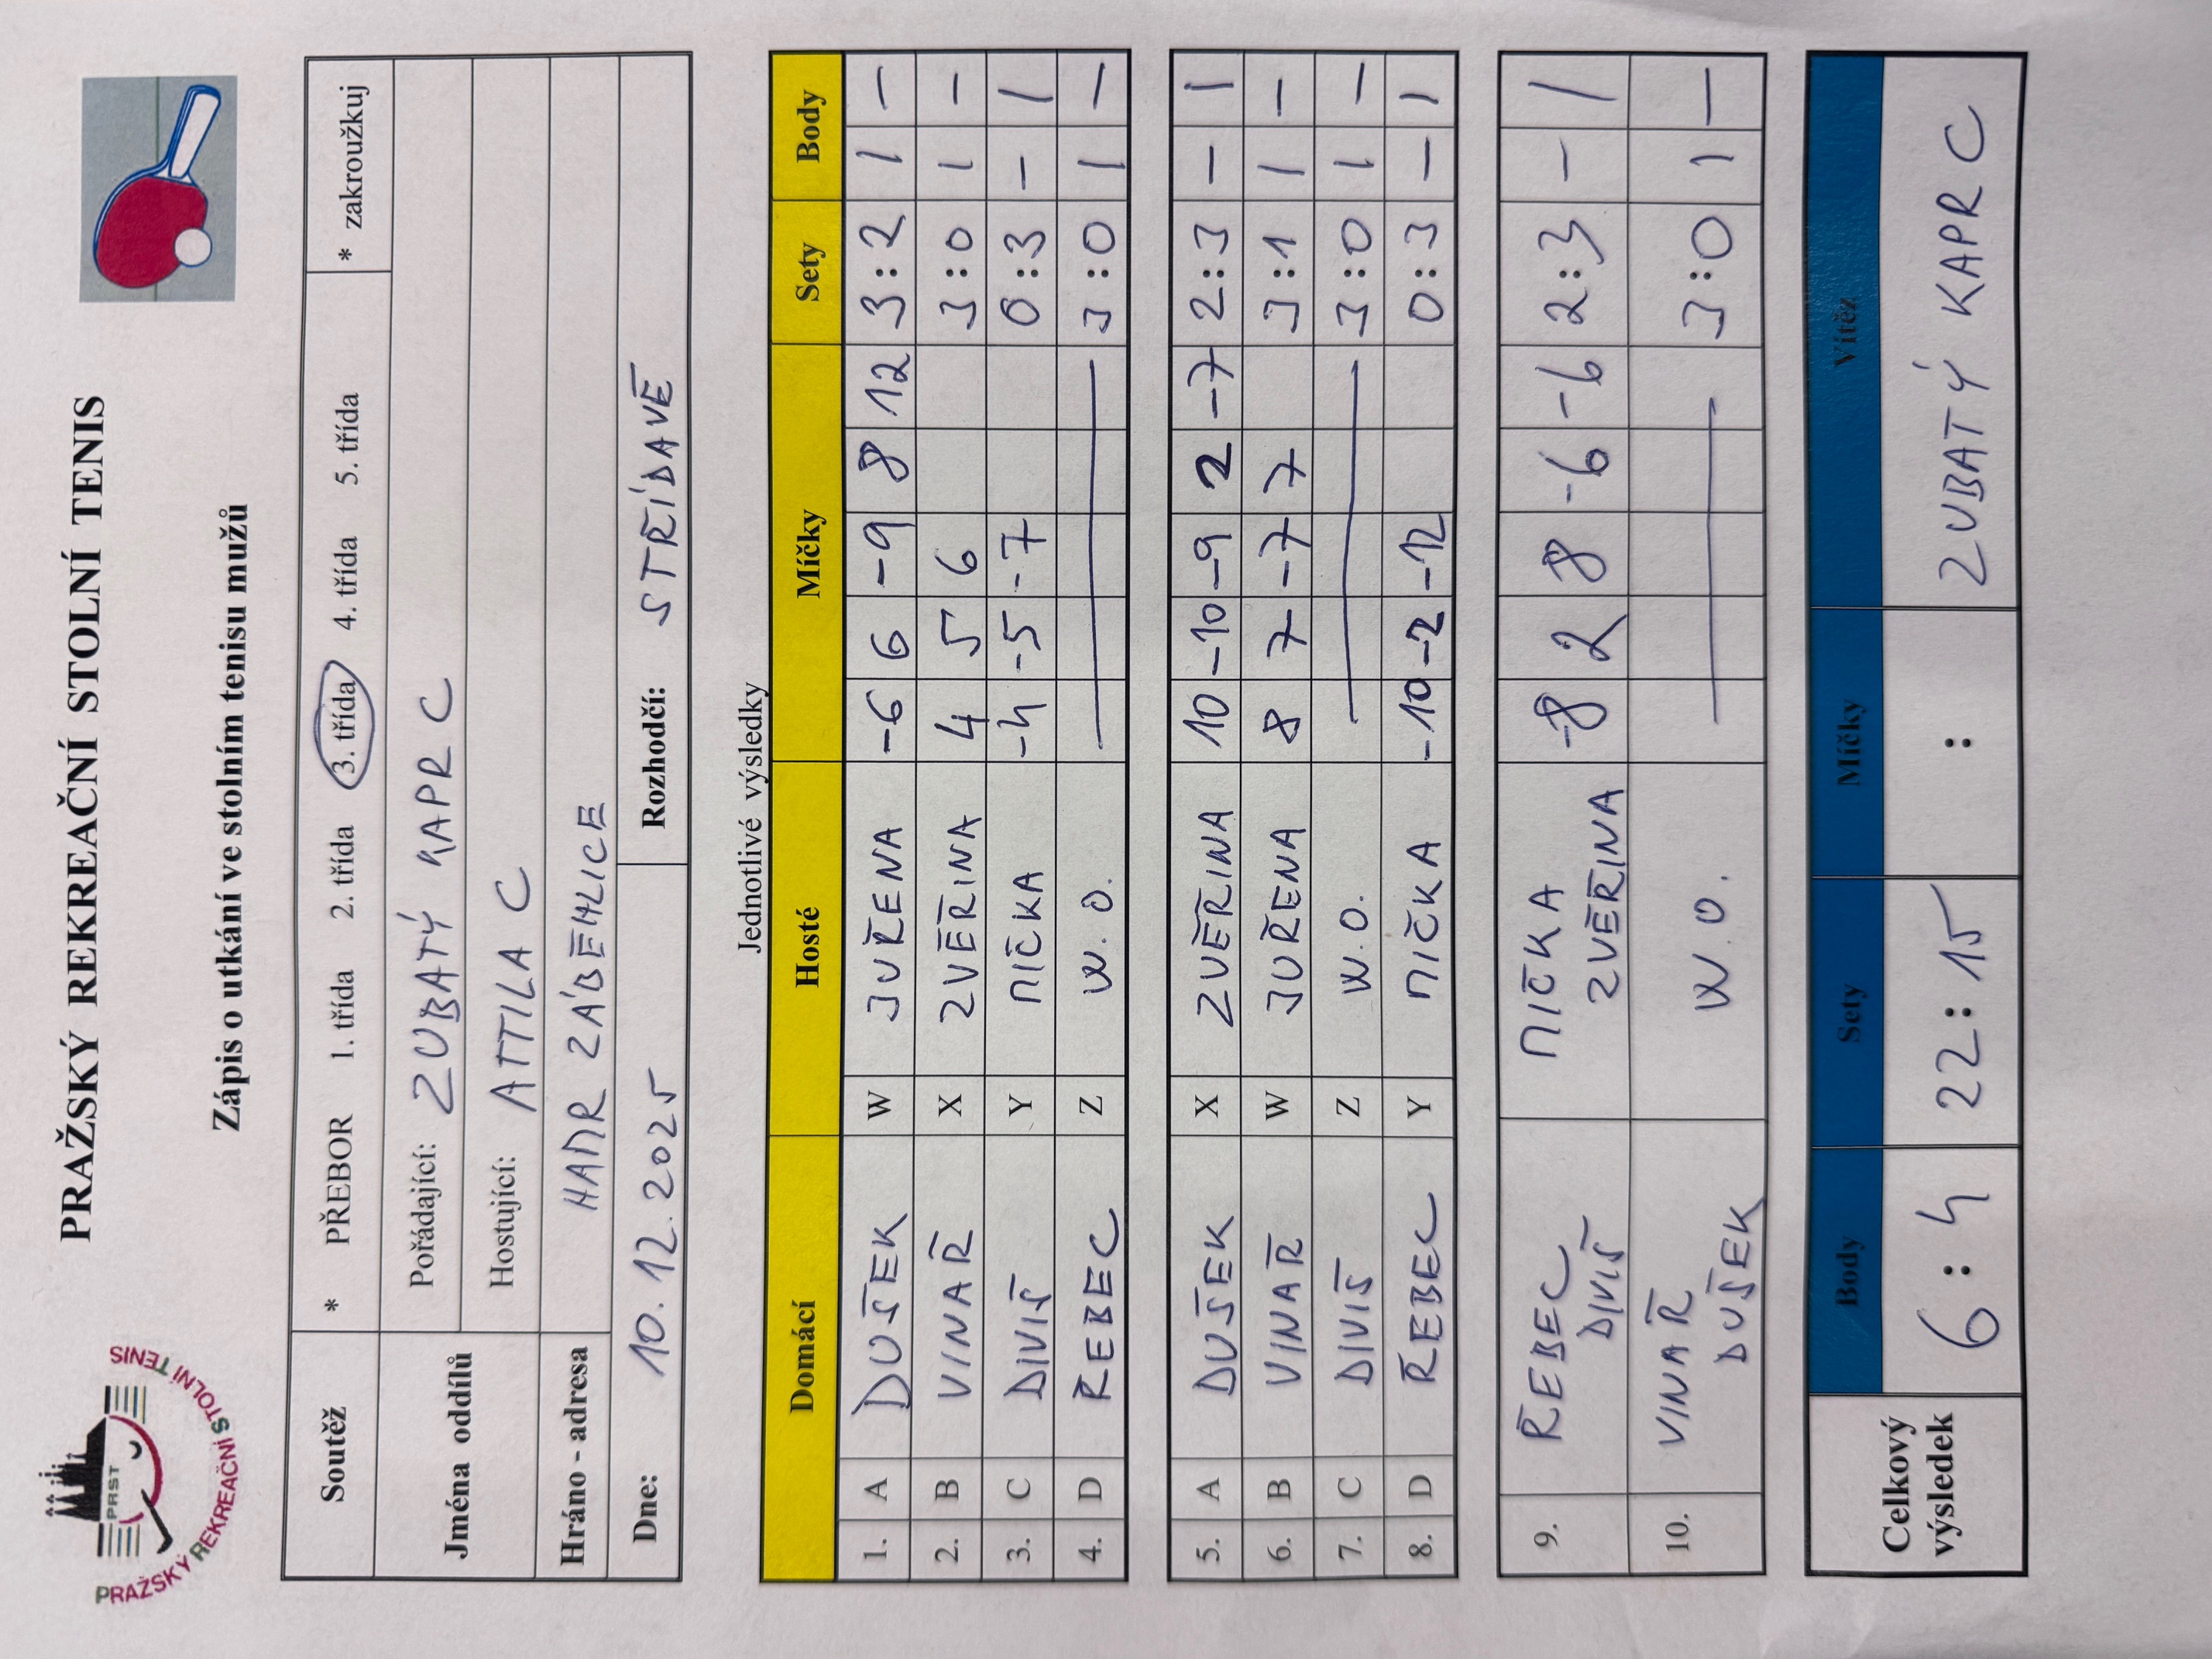 PRAŽSKÝ REKREAČNÍ STOLNÍ TENIS
PRST
PRAŽSKÝ REKREAČNÍ STOLNÍ TENIS
Zápis o utkání ve stolním tenisu mužů
Soutěž * PŘEBOR 1. třída 2. třída 3. třída 4. třída 5. třída * zakroužkuj
Jména oddílů
Pořádající: ZUBATÝ KAPR C
Hostující: ATTILA C
Hráno - adresa HAMR ZÁBĚHLICE
Dne: 10.12.2025 Rozhodčí: STŘÍDAVĚ
Jednotlivé výsledky
Domácí Hosté Míčky Sety Body
1. A DUŠEK W JUŘENA -6 6 -9 8 12 3:2 1 –
2. B VINAŘ X ZVĚŘINA 4 5 6 3:0 1 –
3. C DIVIŠ Y MIČKA -4 -5 -7 0:3 – 1
4. D ŘEBEC Z W.O. 3:0 1 –
5. A DUŠEK X ZVĚŘINA 10 -10 -9 2 -7 2:3 – 1
6. B VINAŘ W JUŘENA 8 7 -7 7 3:1 1 –
7. C DIVIŠ Z W.O. 3:0 1 –
8. D ŘEBEC Y MIČKA -10 -2 -12 0:3 – 1
9. ŘEBEC MIČKA -8 2 8 -6 -6 2:3 – 1
DIVIŠ ZVĚŘINA
10. VINAŘ W.O. 3:0 1 –
DUŠEK
Celkový výsledek
Body Sety Míčky Vítěz
6:4 22:15 : ZUBATÝ KAPR C